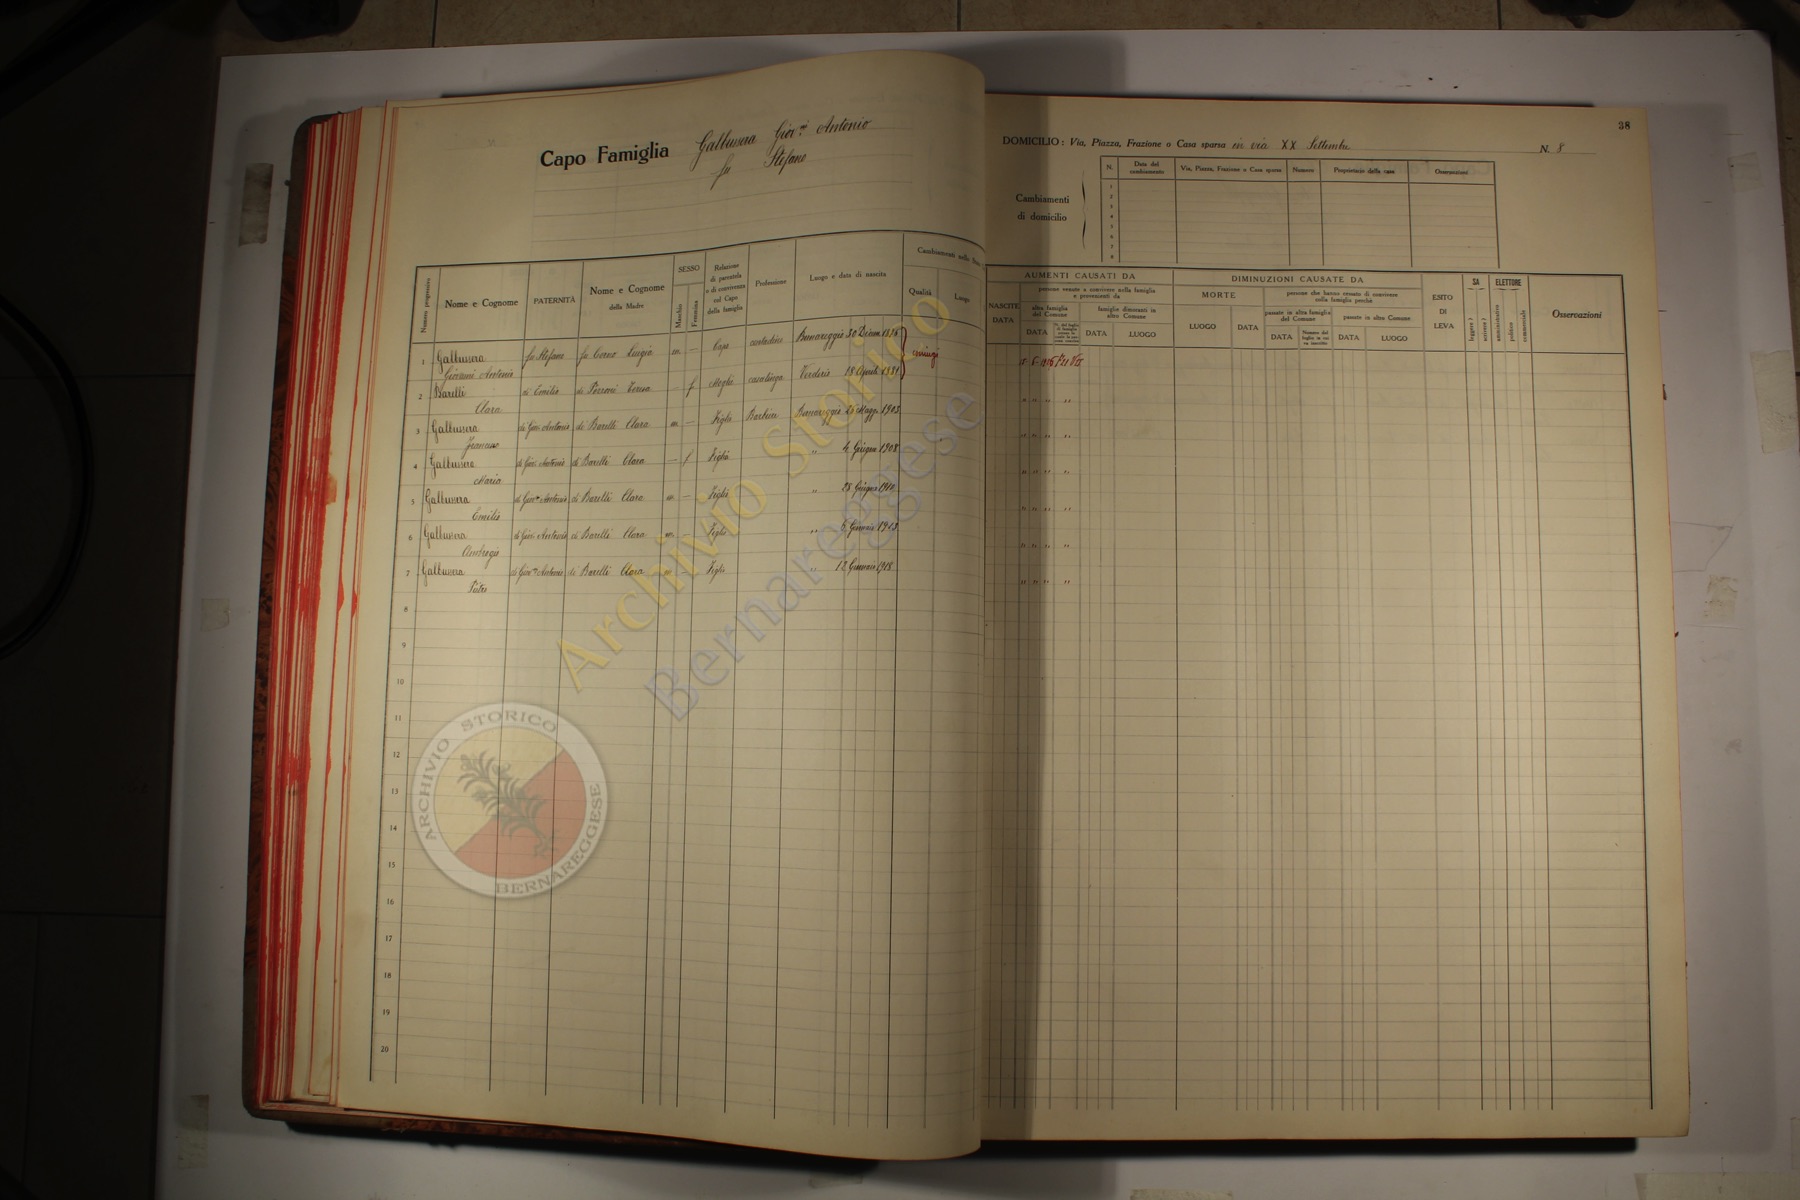 Capo Famiglia Galbusera Giov.ni Antonio
fu Stefano
38
DOMICILIO: Via, Piazza, Frazione o Casa sparsa in via XX Settembre N. 8
Cambiamenti di domicilio
N. Data del cambiamento Via, Piazza, Frazione o Casa sparsa Numero Proprietario della casa Osservazioni
1
2
3
4
5
6
7
8
Numero progressivo Nome e Cognome PATERNITÀ Nome e Cognome della Madre SESSO Maschio Femmina Relazione di parentela o di convivenza col Capo della famiglia Professione Luogo e data di nascita Cambiamenti nello Qualità Luogo
NASCITE DATA AUMENTI CAUSATI DA persone venute a convivere nella famiglia e provenienti da altra famiglia del Comune DATA famiglie dimoranti in altro Comune DATA LUOGO
DIMINUZIONI CAUSATE DA MORTE LUOGO DATA persone che hanno cessato di convivere nella famiglia perchè passate in altra famiglia del Comune DATA Numero del foglio in cui va inscritto passate in altro Comune DATA LUOGO
ESITO DI LEVA SA leggere? scrivere? ELETTORE amministrativo politico commerciale Osservazioni
1 Galbusera Giovanni Antonio fu Stefano fu Corno Luigia m. — Capo contadino Bernareggio 30 Dicem. coniugi
2 Barelli Clara di Emilio di Teresa — f. Moglie casalinga Verderio 18 Aprile 1881 " " " "
3 Galbusera Francesco di Giov. Antonio di Barelli Clara m. — Figlio Barbiere Bernareggio 1903 " " " "
4 Galbusera Maria di Giov. Antonio di Barelli Clara — f. Figlia " 4 Giugno 1908 " " " "
5 Galbusera Emilio di Giov.ni Antonio di Barelli Clara m. — Figlio " 28 Giugno " " " "
6 Galbusera Ambrogio di Giov. Antonio di Barelli Clara m. — Figlio " 6 Gennaio 1913 " " " "
7 Galbusera Pietro di Giov.ni Antonio di Barelli Clara m. — Figlio " 12 Gennaio 1918 " " " "
8
9
10
11
12
13
14
15
16
17
18
19
20
Archivio Storico
Bernareggese
ARCHIVIO STORICO
BERNAREGGESE